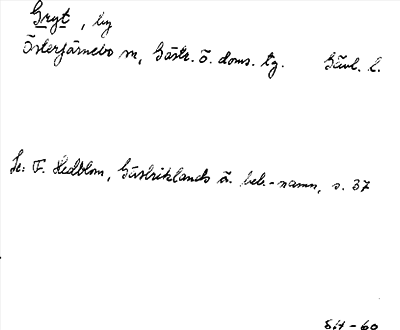 Gryt, by
Österfärnebo sn, Gästr. ö. doms. tg. Gävl. l.
Se: F. Hedblom, Gästriklands ä. beb.-namn, s. 37
-60